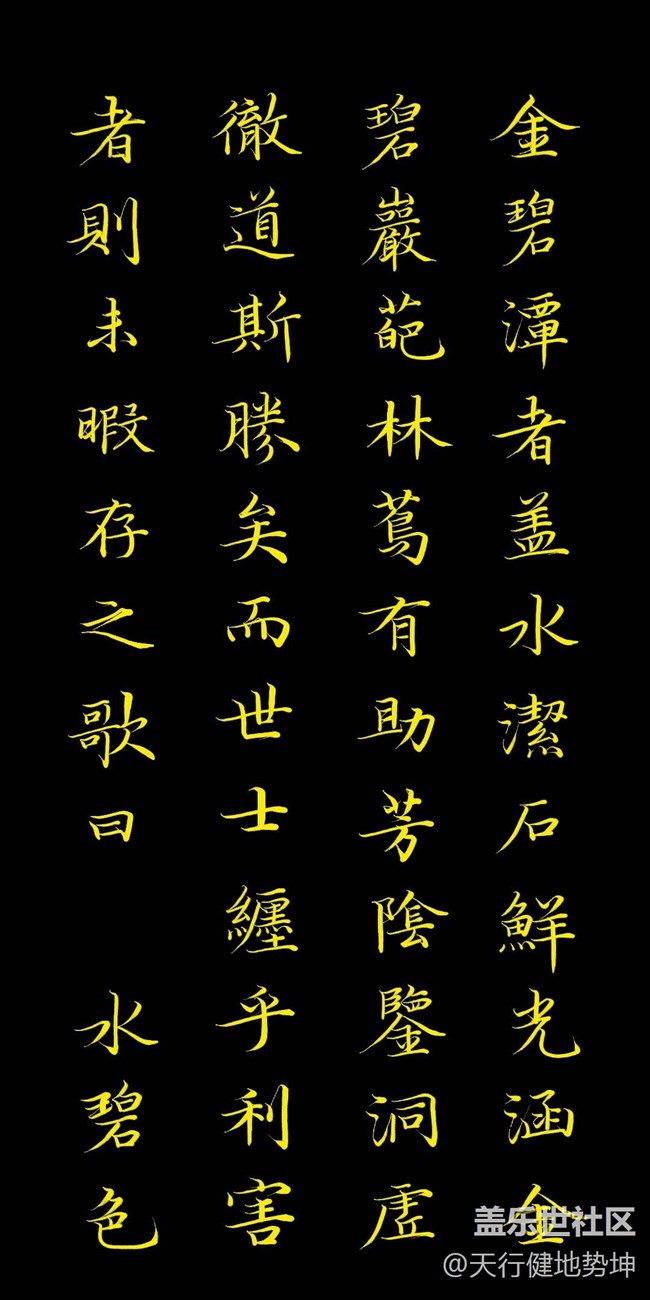 金碧潭者盖水潔石鮮光涵金
碧巖葩林蔦有助芳陰鑒洞虛
徹道斯勝矣而世士纏乎利害
者則未暇存之歌曰 水碧色
盖乐世社区
@天行健地势坤